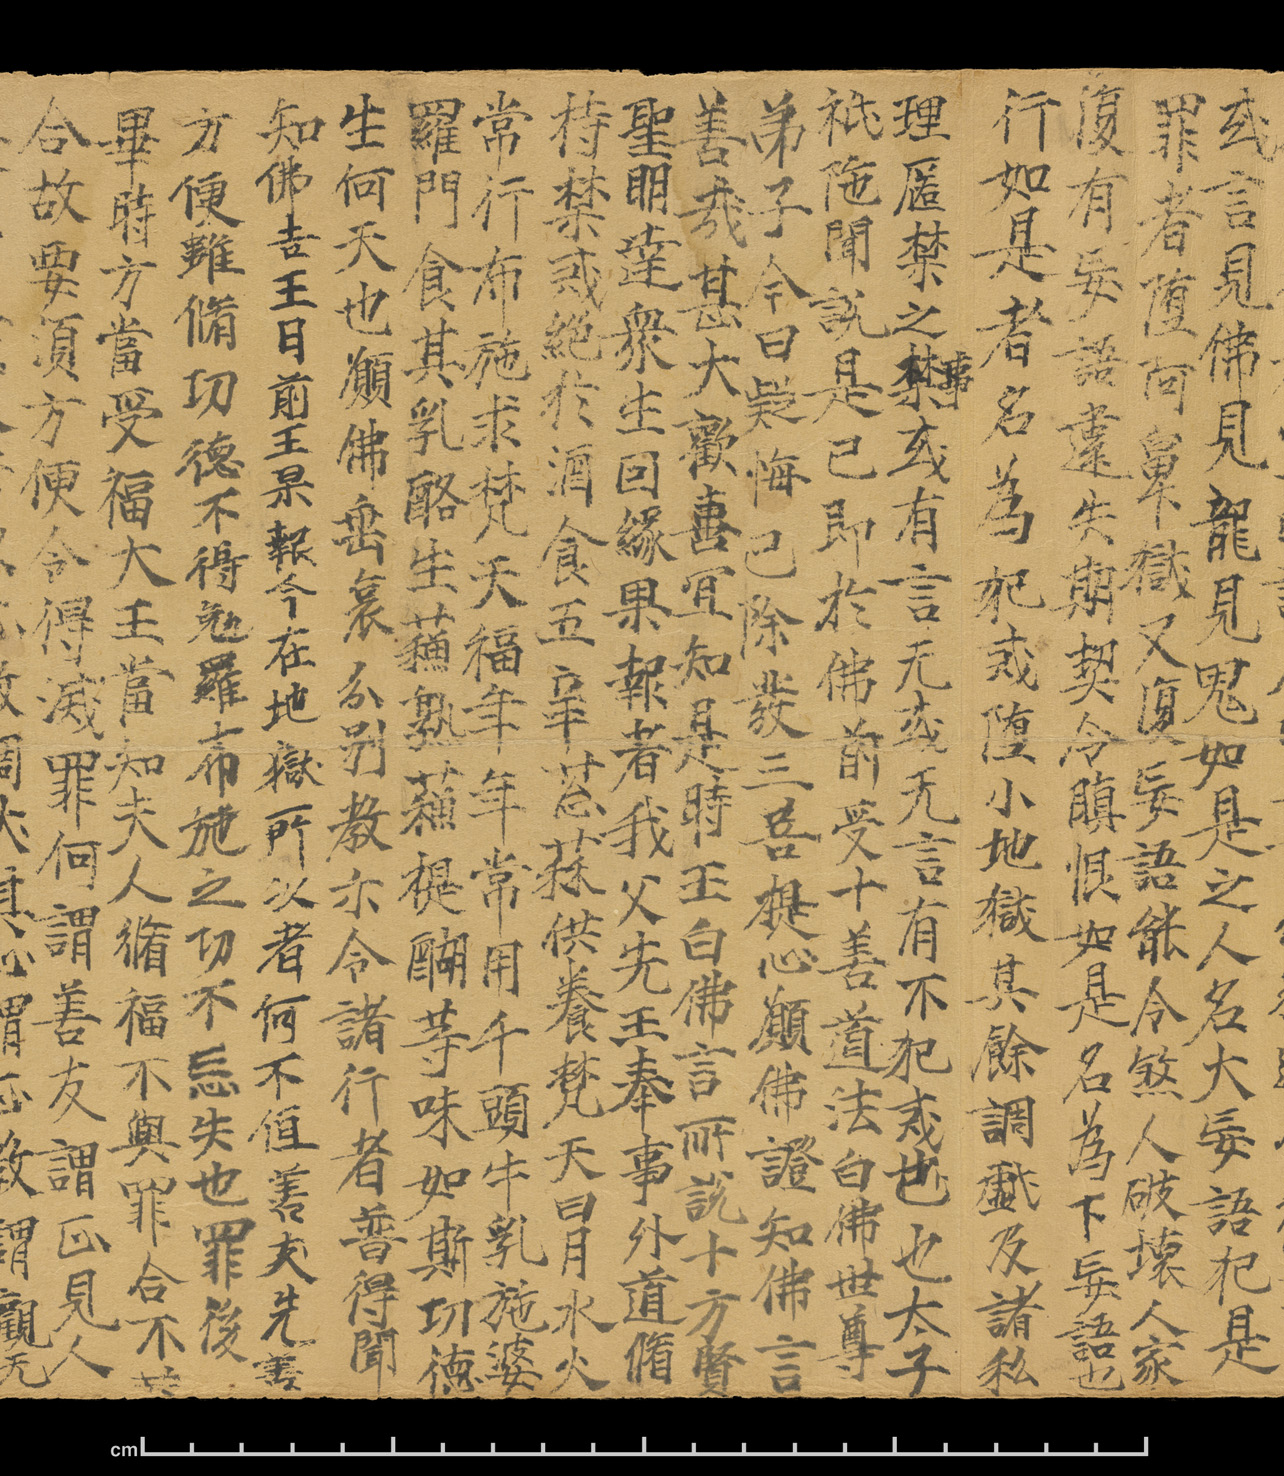 或言見佛見龍見鬼如是之人名大妄語犯是
罪者墮阿鼻獄又復妄語能令煞人破壞人家
復有妄語違失期契令瞋恨如是名為下妄語也
行如是者名為犯戒墮小地獄其餘調戲及諸私
理匿禁之禁事或有言无或无言有不犯戒也也太子
祇陁聞說是已即於佛前受十善道法白佛世尊
弟子今日疑悔已除發三菩提心願佛證知佛言
善哉甚大歡喜冝知是時王白佛言所說十方賢
聖明達衆生回緣果報者我父先王奉事外道脩
持禁戒絕於酒食五辛荵蒜供養梵天日月水火
常行布施求梵天福年年常用千頭牛乳施婆
羅門食其乳酪生蘓熟蘓醍醐等味如斯切德
生何天也願佛垂哀分別教示令諸行者普得聞
知佛告王曰前王果報今在地獄所以者何不值善友先善
方便雖脩切德不得勉羅布施之切不忘失也罪後
畢時方當受福大王當知夫人脩福不與罪合不共
合故要須方便令得滅罪何謂善友謂正見人